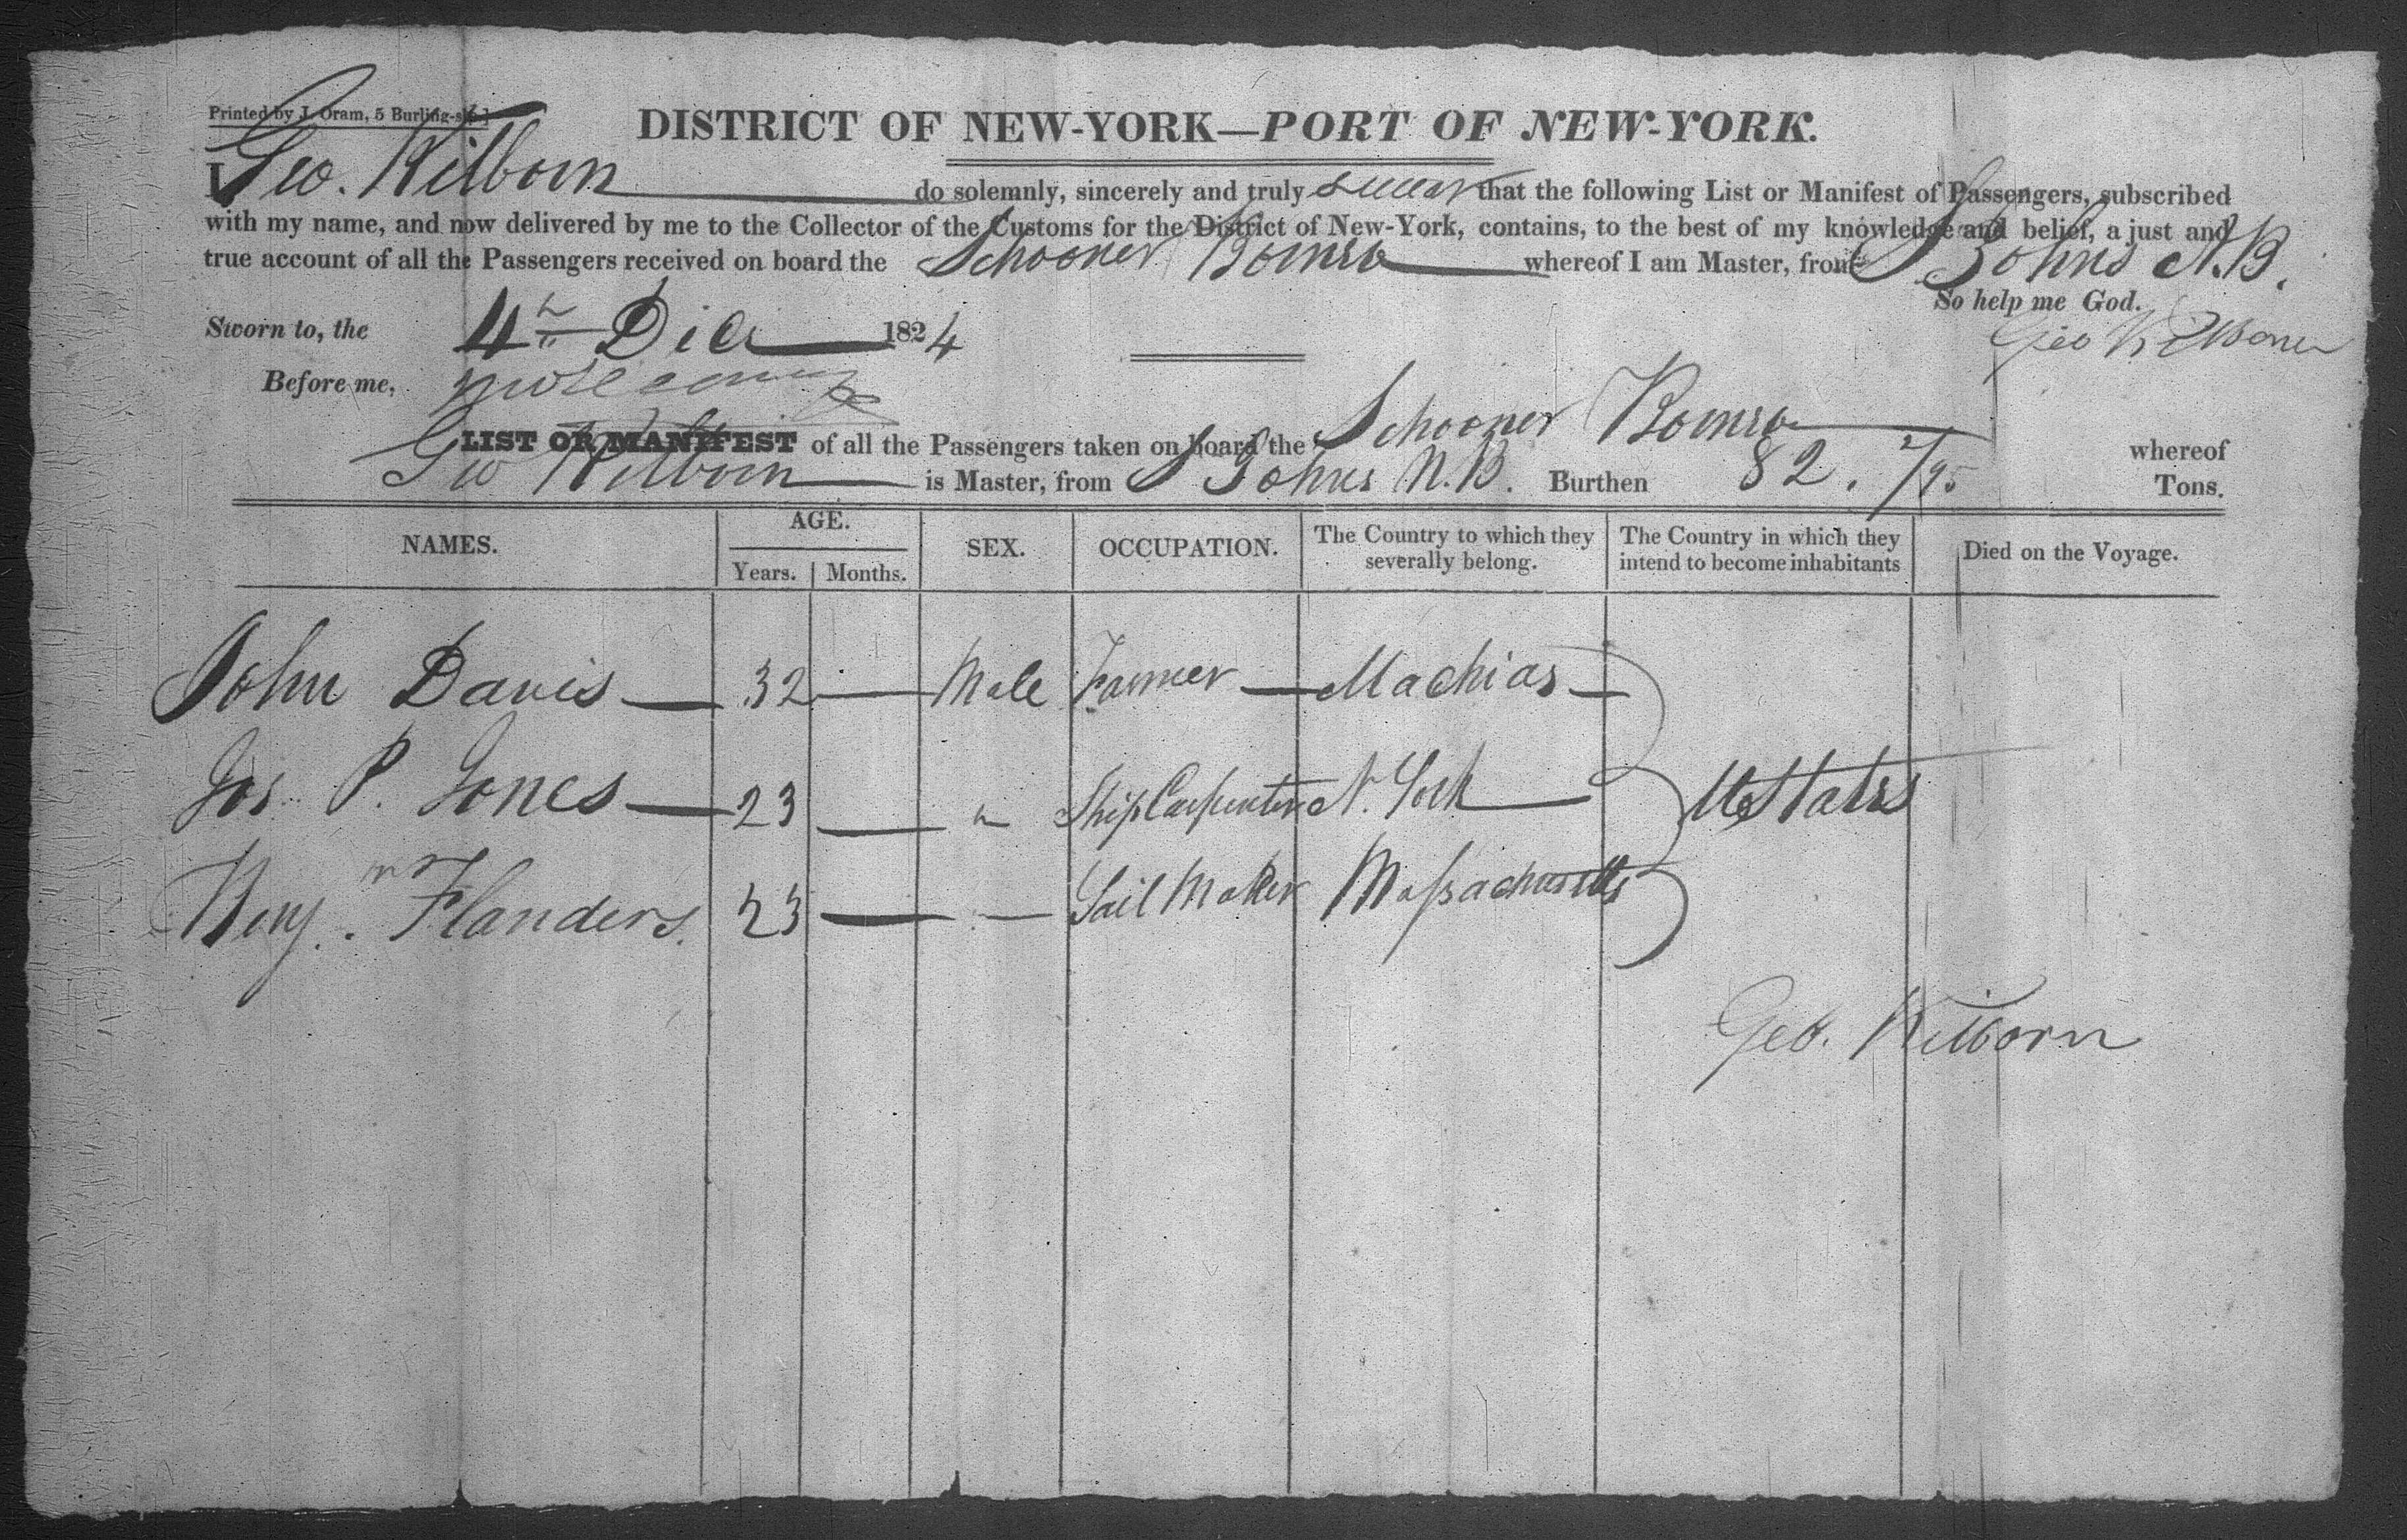 Printed by J. Oram, 5 Burling-slip.]
DISTRICT OF NEW-YORK—PORT OF NEW-YORK.
I Geo. Kilborn do solemnly, sincerely and truly swear that the following List or Manifest of Passengers, subscribed
with my name, and now delivered by me to the Collector of the Customs for the District of New-York, contains, to the best of my knowledge and belief, a just and
true account of all the Passengers received on board the Schooner whereof I am Master, from St Johns N.B.
So help me God.
Sworn to, the 4th Dec 1824
Geo Kilborn
Before me,
LIST OR MANIFEST of all the Passengers taken on board the Schooner whereof
Geo Kilborn is Master, from St Johns N.B. Burthen 82. /95 Tons.
NAMES. AGE. SEX. OCCUPATION. The Country to which they severally belong. The Country in which they intend to become inhabitants Died on the Voyage.
Years. Months.
John Davis 32 Male Farmer Machias
Jos. P. Jones 23 " Ship Carpenter N. York U States
Benj. Flanders. 23 — Sail Maker Massachusetts
Geo. Kilborn